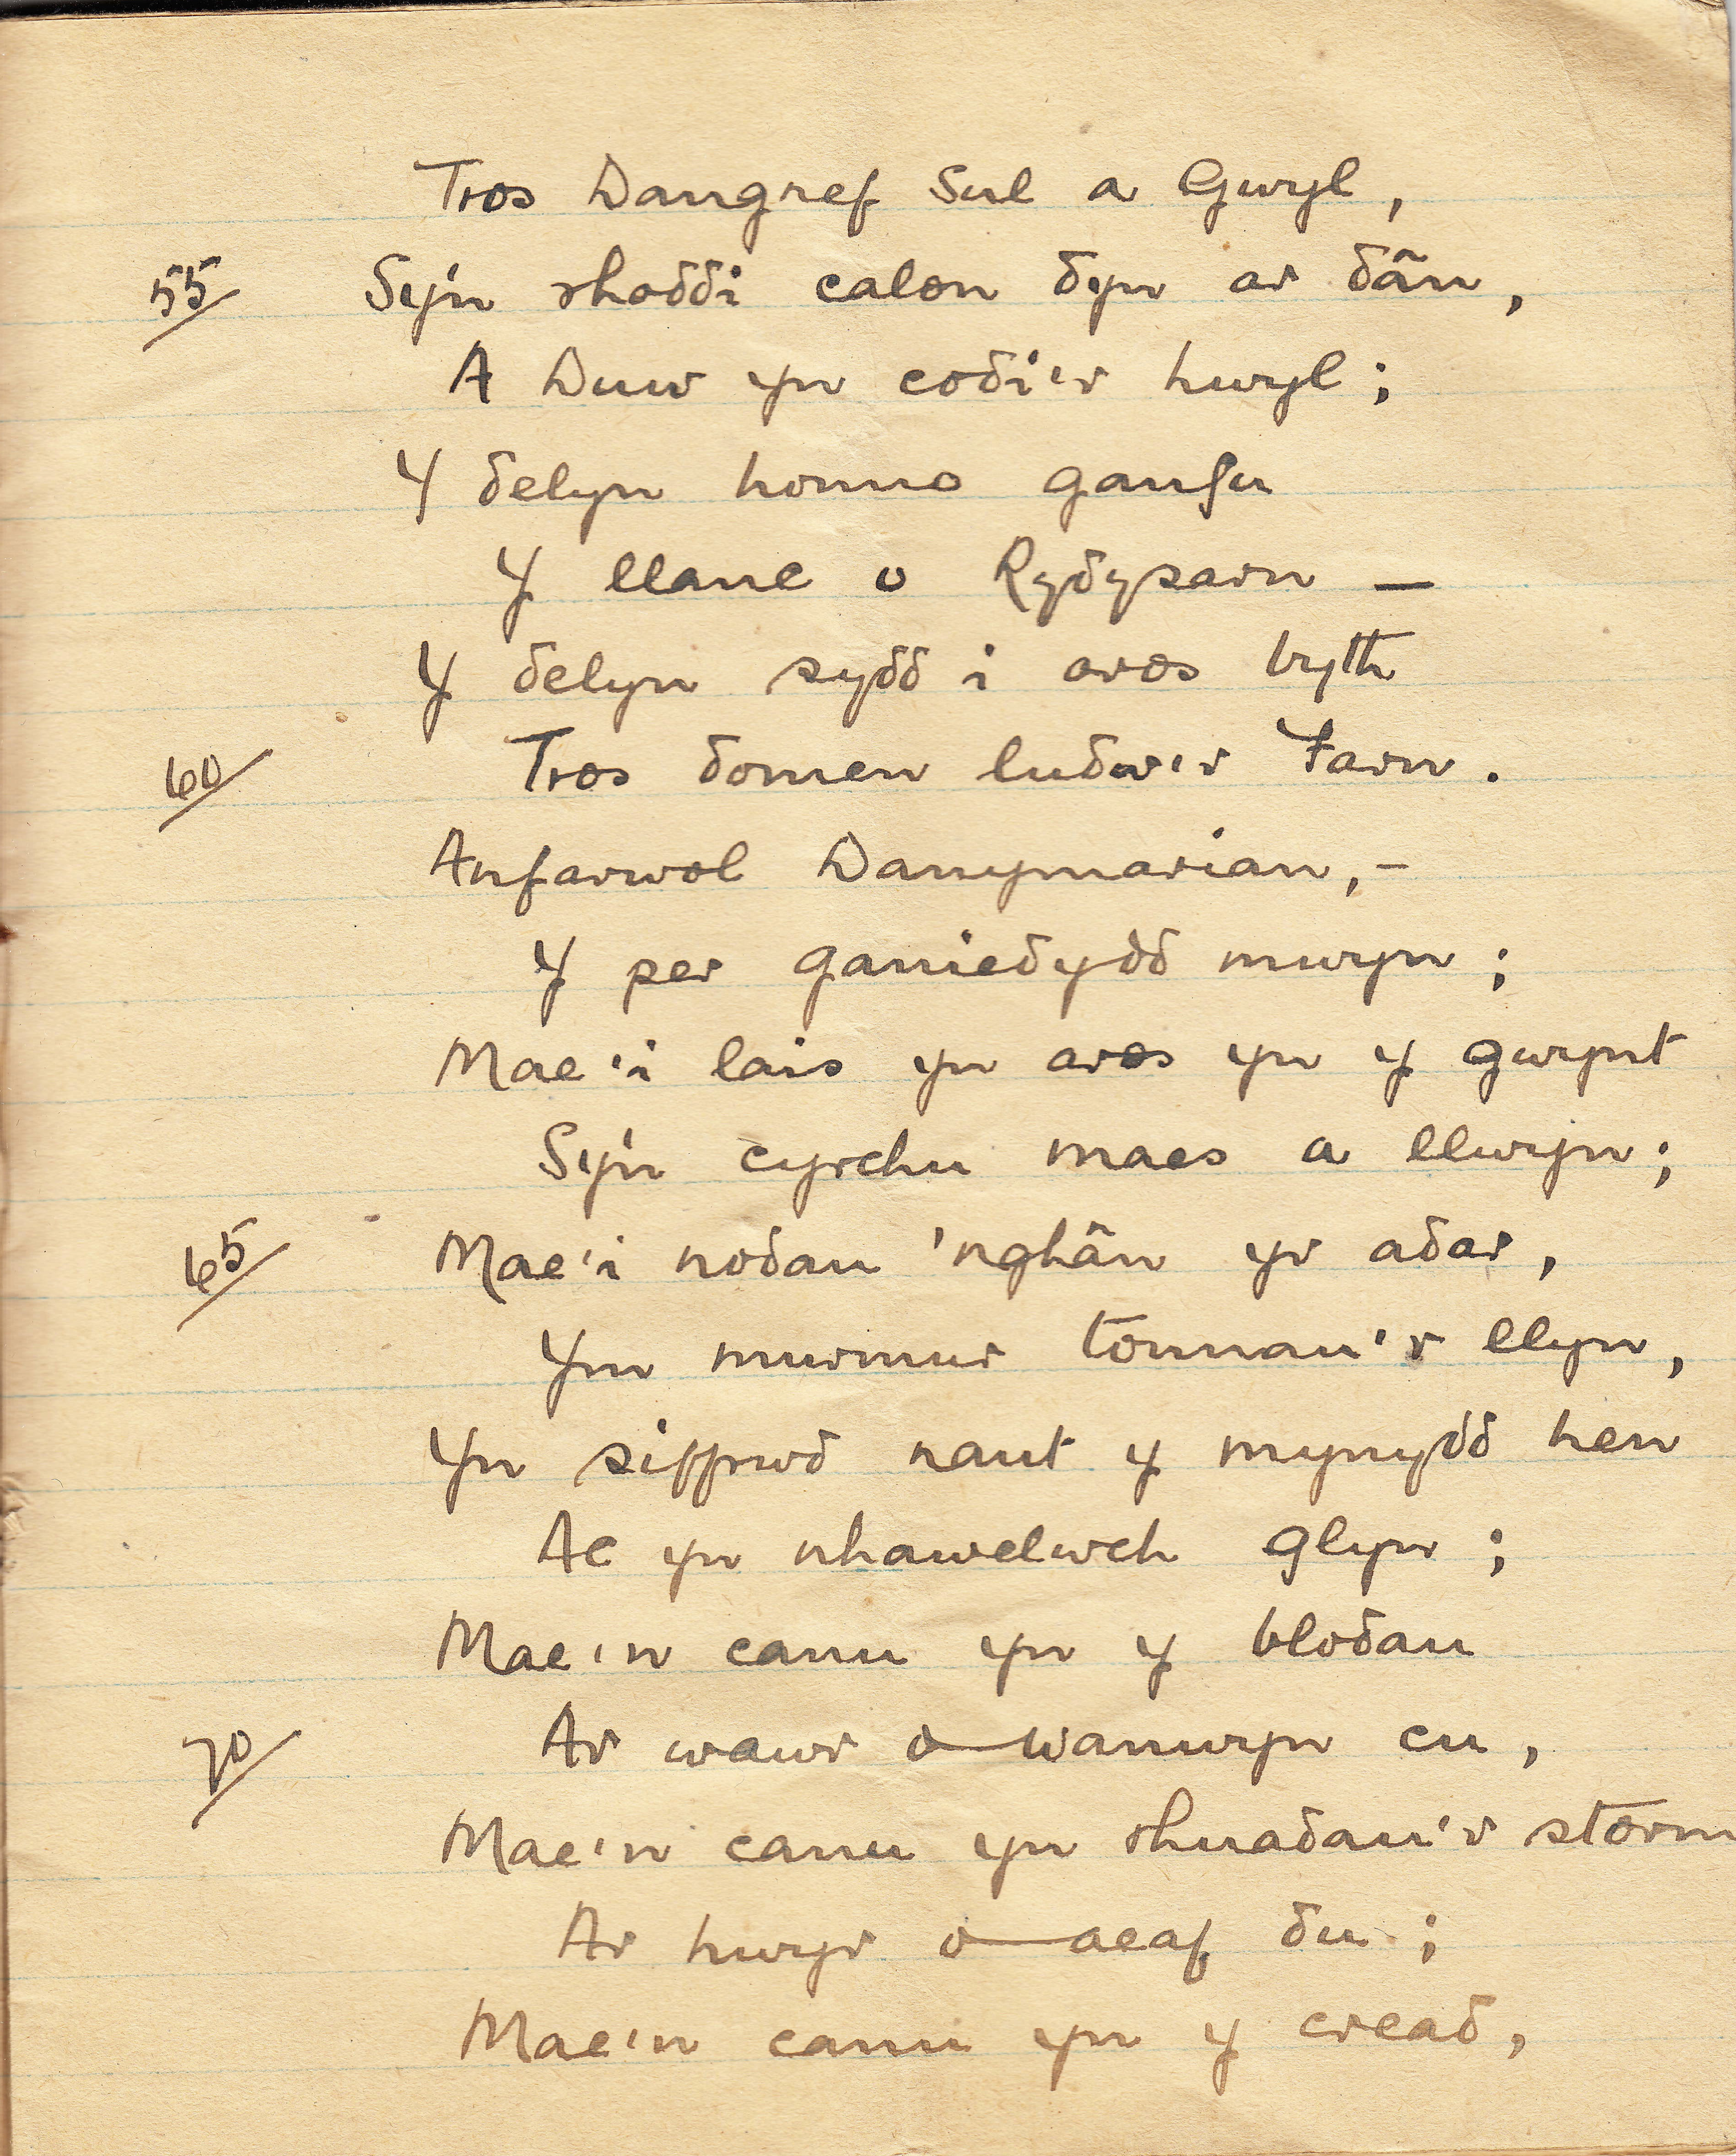 Tros Dangnef Sul a Gwyl,
55 Sy'n rhoddi calon dyn ar dân,
A Duw yn codi'r hwyl;
Y delyn honno ganfu
Y llanc o Rydysarn —
Y delyn sydd i aros byth
60 Tros domen ludw'r Farn.
Anfarwol Danymarian,–
Y per ganiedydd mwyn;
Mae'i lais yn aros yn y gwynt
Sy'n cyrchu maes a llwyn;
65 Mae'i nodau 'nghân yr adar,
Ym murmur tonnau'r llyn,
Yn siffrwd nant y mynydd hen
Ac yn nhawelwch glyn;
Mae'n canu yn y blodau
70 Ar wawr o wanwyn cu,
Mae'n canu yn rhuadau'r storm
Ar hwyr o aeaf du;
Mae'n canu yn y cread,